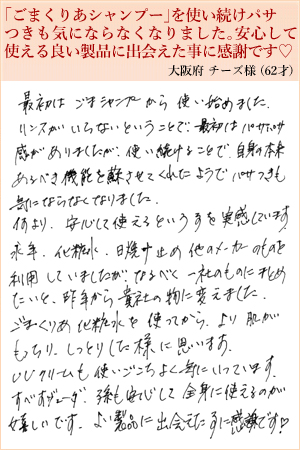 「ごまくりあシャンプー」を使い続けパサ
つきも気にならなくなりました。安心して
使える良い製品に出会えた事に感謝です♡
大阪府 チーズ様（62才）
最初は ごまシャンプーから 使い始めました。
リンスがいらないということで、最初はパサパサ
感がありましたが、使い続けることで、自身の本来
あるべき機能を蘇らせてくれたようでパサつきも
気にならなくなりました。
何より、安心して使えるという事を実感しています。
永年、化粧水、日焼け止め 他のメーカーのものを
利用していましたが、なるべく一社のものにまとめ
たいと、昨年から貴社の物に変えました。
ごまくりあ化粧水を使ってから、より肌が
もっちり、しっとりした様に思います。
UVクリームも使いごこちよく気に入っています。
すべすべパーダー、孫も安心して全身に使えるのが
嬉しいです。よい製品に出会えた事に感謝です♡